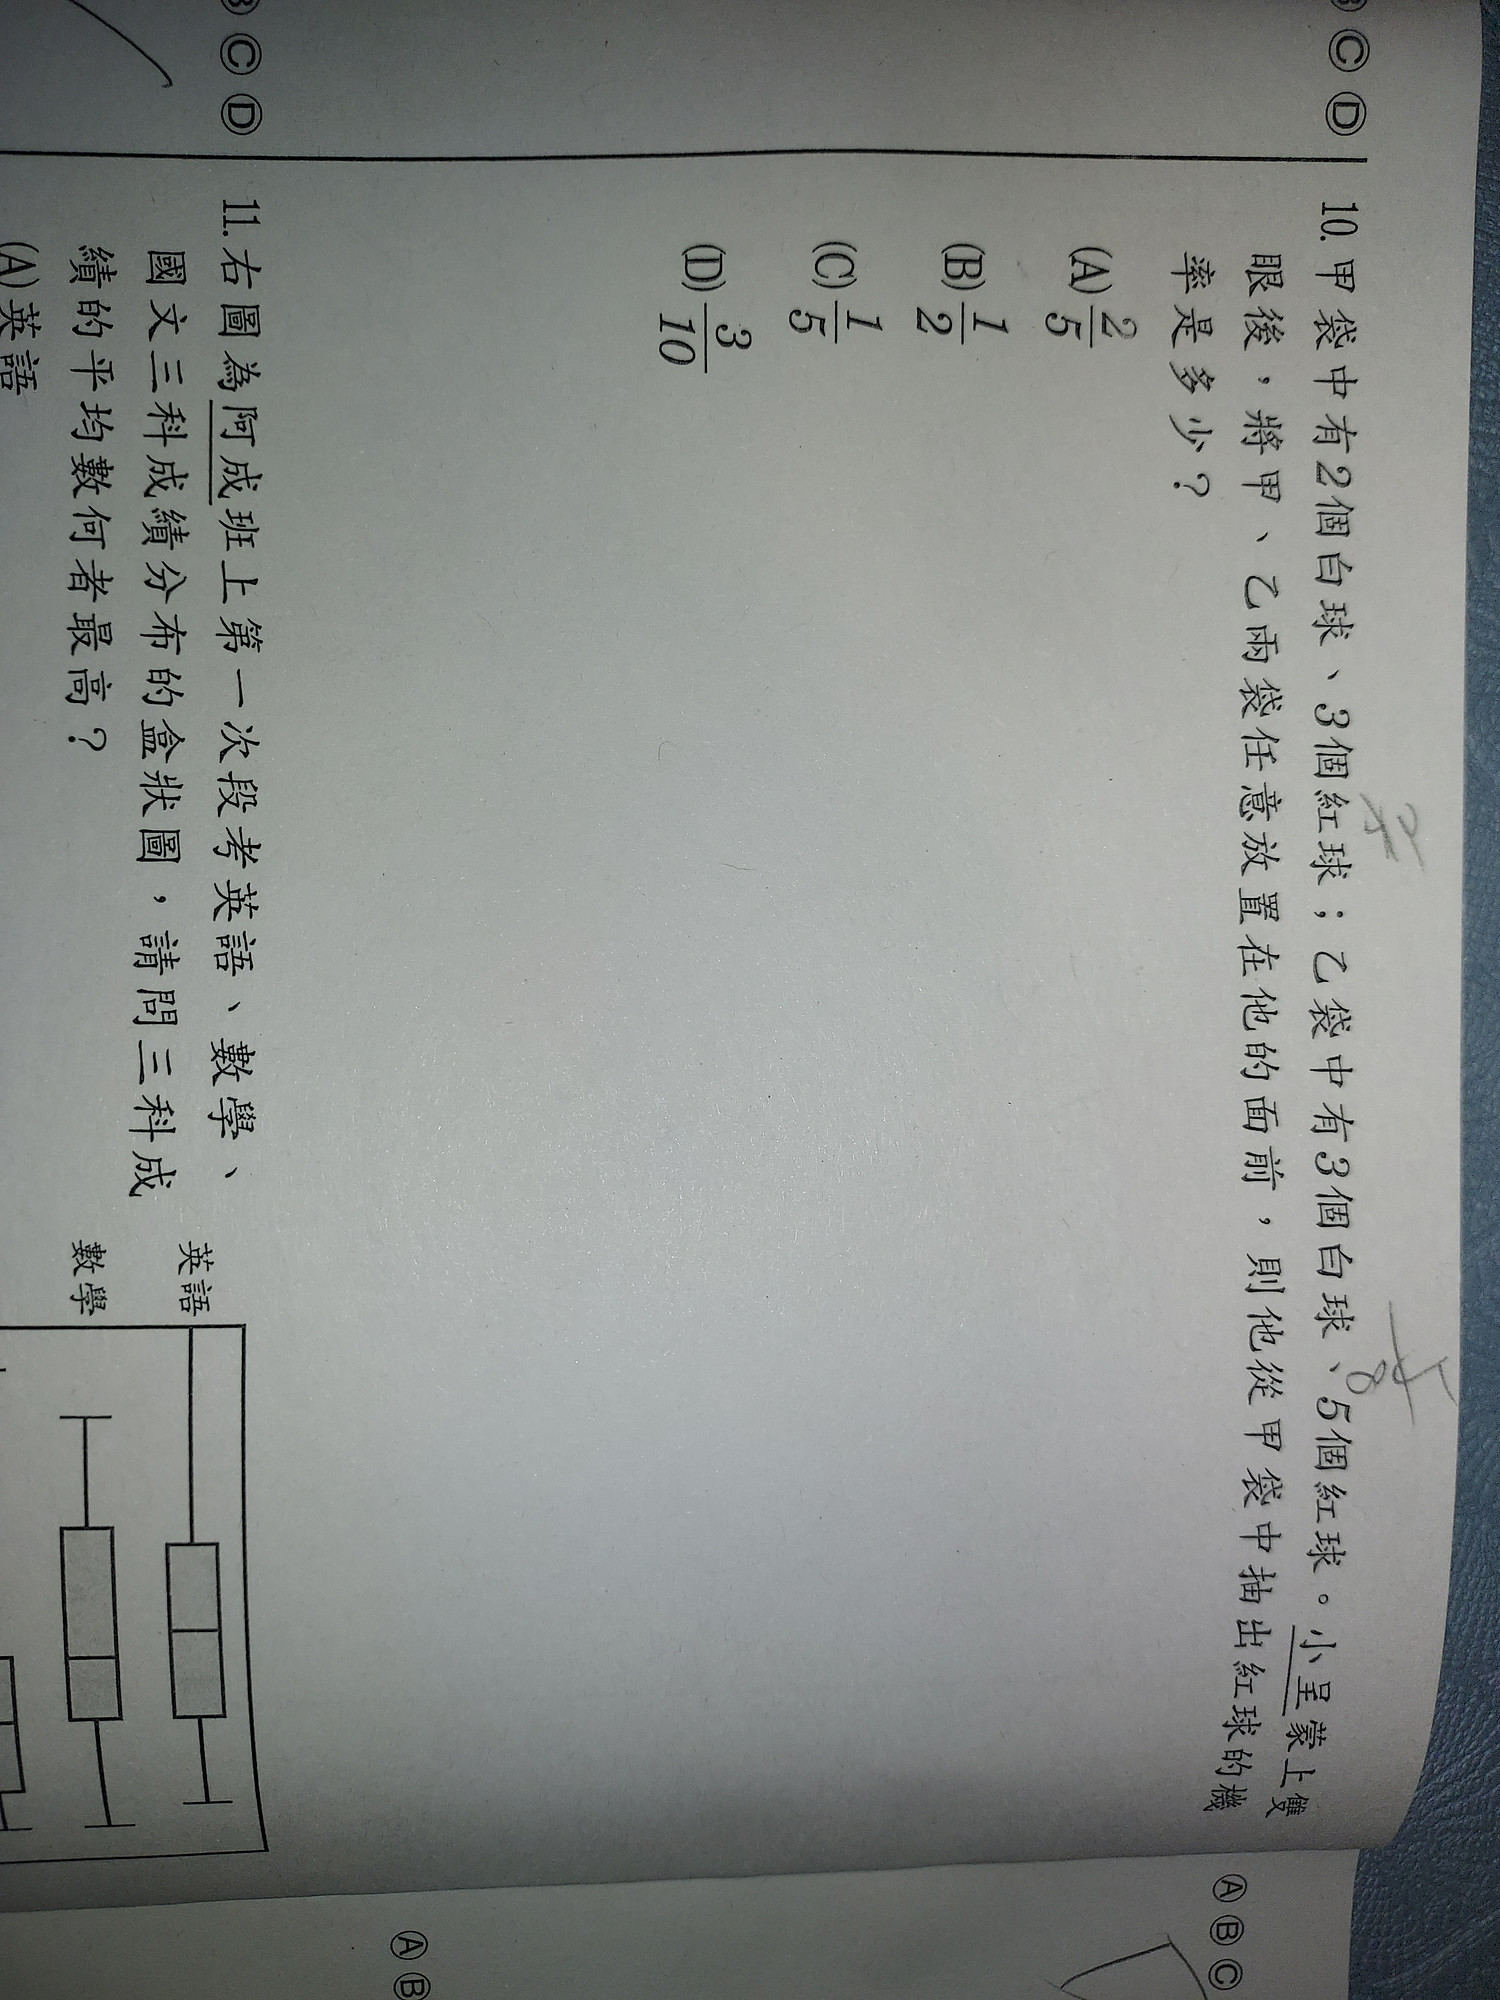 Ⓒ Ⓓ
10. 甲袋中有2個白球、3個紅球；乙袋中有3個白球、5個紅球。小呈蒙上雙
眼後，將甲、乙兩袋任意放置在他的面前，則他從甲袋中抽出紅球的機
率是多少？
(A) 2/5
(B) 1/2
(C) 1/5
(D) 3/10
Ⓐ Ⓑ Ⓒ
Ⓒ Ⓓ
11. 右圖為阿成班上第一次段考英語、數學、
國文三科成績分布的盒狀圖，請問三科成
績的平均數何者最高？
(A)英語
英語
數學
Ⓐ Ⓑ